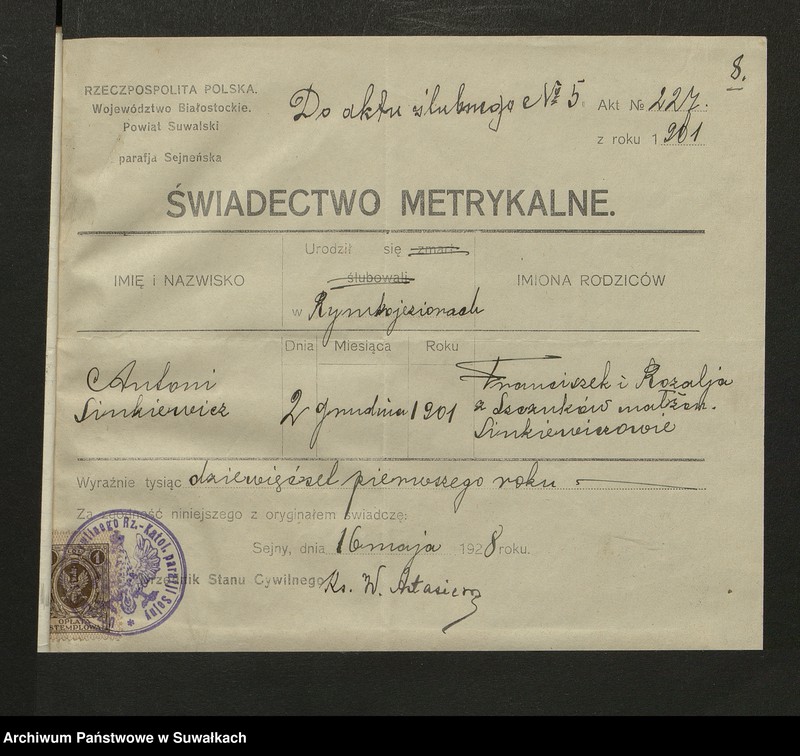 8.
RZECZPOSPOLITA POLSKA.
Województwo Białostockie.
Powiat Suwalski
parafja Sejneńska
Do aktu ślubnego № 5
Akt № 227.
z roku 1901
ŚWIADECTWO METRYKALNE.
IMIĘ i NAZWISKO
Urodził się zmarł
ślubowali
w Rymkojeziorach
IMIONA RODZICÓW
Dnia Miesiąca Roku
Antoni
Sinkiewicz
2 grudnia 1901
Franciszek i Rozalja
z Leszuków małżon.
Sinkiewiczowie
Wyraźnie tysiąc dziewięćset pierwszego roku
Za zgodność niniejszego z oryginałem świadczę:
Sejny, dnia 16 maja 1928 roku.
Stanu Cywilnego Ks. W.
Rz.-Katol. parafji Sejny
1
OPŁATA
STEMPLOWA
Archiwum Państwowe w Suwałkach